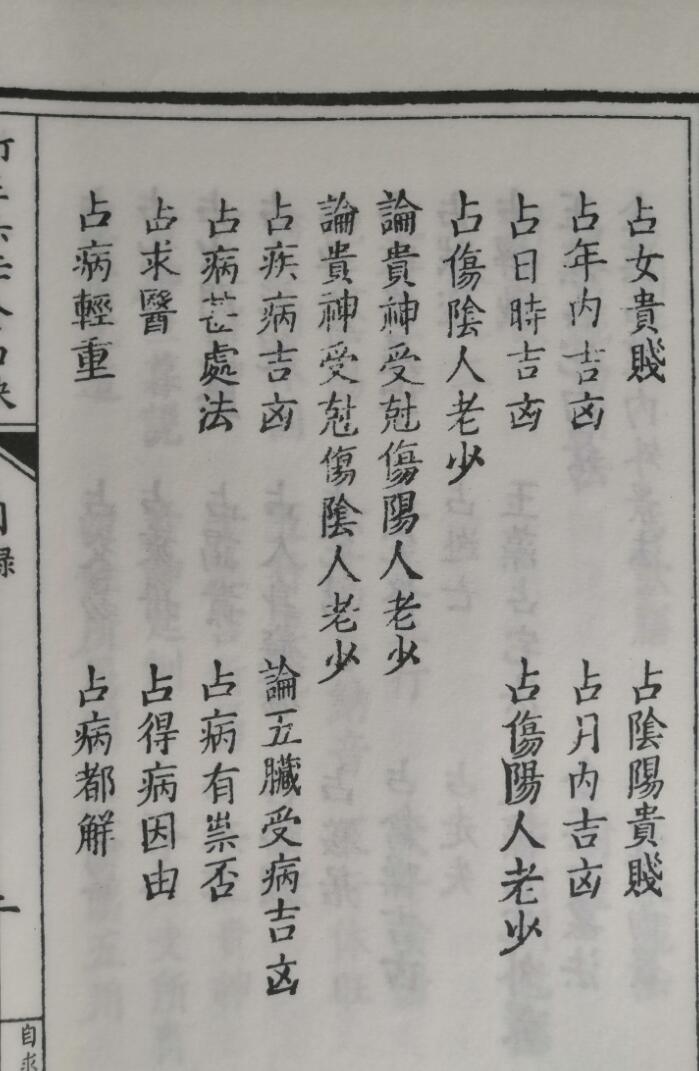 占女貴賤
占陰陽貴賤
占年內吉凶
占月內吉凶
占日時吉凶
占傷陽人老少
占傷陰人老少
論貴神受尅傷陽人老少
論貴神受尅傷陰人老少
占疾病吉凶
論五臟受病吉凶
占病處法
占病有祟否
占求醫
占得病因由
占病輕重
占病都解
目錄